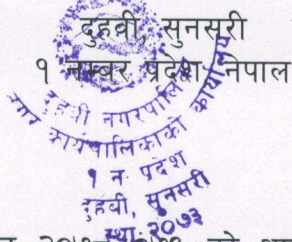 दुहवी, सुनसरी
१ नम्बर प्रदेश, नेपाल
दुहवी नगरपालिका
नगर कार्यपालिकाको कार्यालय
१ नं प्रदेश
दुहवी, सुनसरी
स्था: २०७३